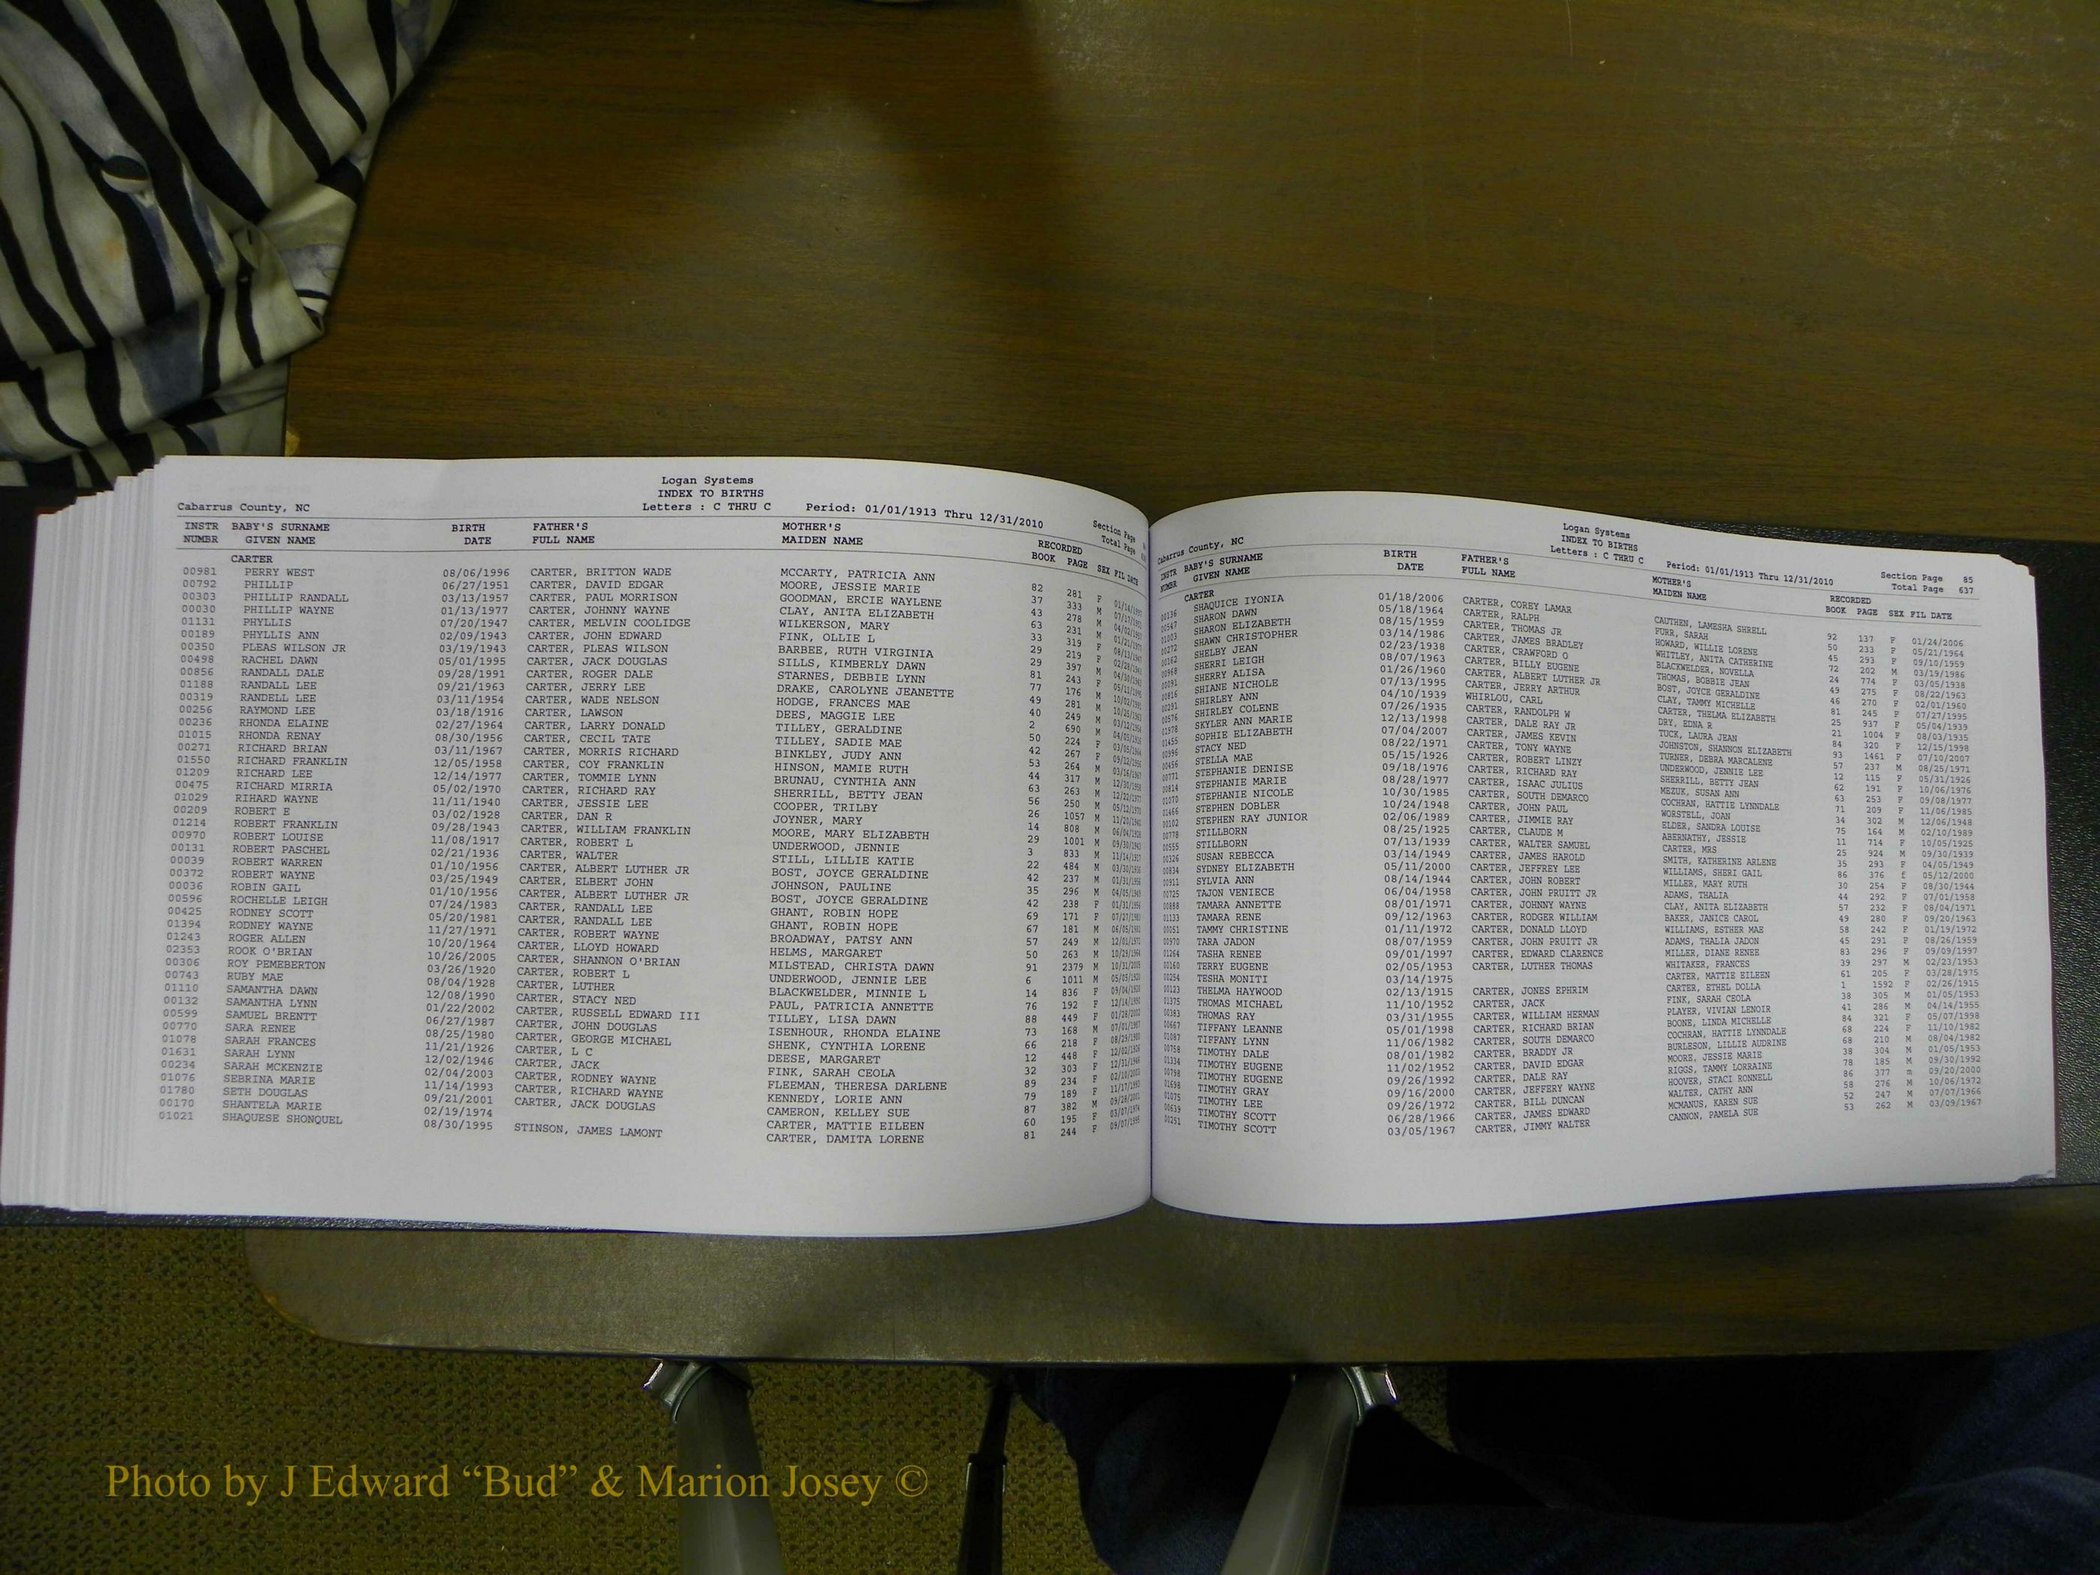 Logan Systems
INDEX TO BIRTHS
Cabarrus County, NC Letters : C THRU C Period: 01/01/1913 Thru 12/31/2010 Section Page
Total Page
INSTR BABY'S SURNAME BIRTH FATHER'S MOTHER'S RECORDED
NUMBR GIVEN NAME DATE FULL NAME MAIDEN NAME BOOK PAGE SEX FIL DATE
CARTER
00981 PERRY WEST 08/06/1996 CARTER, BRITTON WADE MCCARTY, PATRICIA ANN 82 281 F
00792 PHILLIP 06/27/1951 CARTER, DAVID EDGAR MOORE, JESSIE MARIE 37 333 M
00303 PHILLIP RANDALL 03/13/1957 CARTER, PAUL MORRISON GOODMAN, ERCIE WAYLENE 43 278 M
00030 PHILLIP WAYNE 01/13/1977 CARTER, JOHNNY WAYNE CLAY, ANITA ELIZABETH 63 231 M
01131 PHYLLIS 07/20/1947 CARTER, MELVIN COOLIDGE WILKERSON, MARY 33 319 F
00189 PHYLLIS ANN 02/09/1943 CARTER, JOHN EDWARD FINK, OLLIE L 29 219 F
00350 PLEAS WILSON JR 03/19/1943 CARTER, PLEAS WILSON BARBEE, RUTH VIRGINIA 29 397 M
00498 RACHEL DAWN 05/01/1995 CARTER, JACK DOUGLAS SILLS, KIMBERLY DAWN 81 243 F
00856 RANDALL DALE 09/28/1991 CARTER, ROGER DALE STARNES, DEBBIE LYNN 77 176 M
01188 RANDALL LEE 09/21/1963 CARTER, JERRY LEE DRAKE, CAROLYNE JEANETTE 49 281 M
00319 RANDELL LEE 03/11/1954 CARTER, WADE NELSON HODGE, FRANCES MAE 40 249 M
00256 RAYMOND LEE 03/18/1916 CARTER, LAWSON DEES, MAGGIE LEE 2 690 M
00236 RHONDA ELAINE 02/27/1964 CARTER, LARRY DONALD TILLEY, GERALDINE 50 224 F
01015 RHONDA RENAY 08/30/1956 CARTER, CECIL TATE TILLEY, SADIE MAE 42 267 F
00271 RICHARD BRIAN 03/11/1967 CARTER, MORRIS RICHARD BINKLEY, JUDY ANN 53 264 M
01550 RICHARD FRANKLIN 12/05/1958 CARTER, COY FRANKLIN HINSON, MAMIE RUTH 44 317 M
01209 RICHARD LEE 12/14/1977 CARTER, TOMMIE LYNN BRUNAU, CYNTHIA ANN 63 263 M
00475 RICHARD MIRRIA 05/02/1970 CARTER, RICHARD RAY SHERRILL, BETTY JEAN 56 250 M
01029 RIHARD WAYNE 11/11/1940 CARTER, JESSIE LEE COOPER, TRILBY 26 1057 M
00209 ROBERT E 03/02/1928 CARTER, DAN R JOYNER, MARY 14 808 M
01214 ROBERT FRANKLIN 09/28/1943 CARTER, WILLIAM FRANKLIN MOORE, MARY ELIZABETH 29 1001 M
00970 ROBERT LOUISE 11/08/1917 CARTER, ROBERT L UNDERWOOD, JENNIE 3 833 M
00131 ROBERT PASCHEL 02/21/1936 CARTER, WALTER STILL, LILLIE KATIE 22 484 M
00039 ROBERT WARREN 01/10/1956 CARTER, ALBERT LUTHER JR BOST, JOYCE GERALDINE 42 237 M
00372 ROBERT WAYNE 03/25/1949 CARTER, ELBERT JOHN JOHNSON, PAULINE 35 296 M
00036 ROBIN GAIL 01/10/1956 CARTER, ALBERT LUTHER JR BOST, JOYCE GERALDINE 42 238 F
00596 ROCHELLE LEIGH 07/24/1983 CARTER, RANDALL LEE GHANT, ROBIN HOPE 69 171 F
00425 RODNEY SCOTT 05/20/1981 CARTER, RANDALL LEE GHANT, ROBIN HOPE 67 181 M
01394 RODNEY WAYNE 11/27/1971 CARTER, ROBERT WAYNE BROADWAY, PATSY ANN 57 249 M
01243 ROGER ALLEN 10/20/1964 CARTER, LLOYD HOWARD HELMS, MARGARET 50 263 M
02353 ROOK O'BRIAN 10/26/2005 CARTER, SHANNON O'BRIAN MILSTEAD, CHRISTA DAWN 91 2379 M
00306 ROY PEMEBERTON 03/26/1920 CARTER, ROBERT L UNDERWOOD, JENNIE LEE 6 1011 M
00743 RUBY MAE 08/04/1928 CARTER, LUTHER BLACKWELDER, MINNIE L 14 836 F
01110 SAMANTHA DAWN 12/08/1990 CARTER, STACY NED PAUL, PATRICIA ANNETTE 76 192 F
00132 SAMANTHA LYNN 01/22/2002 CARTER, RUSSELL EDWARD III TILLEY, LISA DAWN 88 449 F
00599 SAMUEL BRENTT 06/27/1987 CARTER, JOHN DOUGLAS ISENHOUR, RHONDA ELAINE 73 168 M
00770 SARA RENEE 08/25/1980 CARTER, GEORGE MICHAEL SHENK, CYNTHIA LORENE 66 218 F
01078 SARAH FRANCES 11/21/1926 CARTER, L C DEESE, MARGARET 12 448 F
01631 SARAH LYNN 12/02/1946 CARTER, JACK FINK, SARAH CEOLA 32 303 F
00234 SARAH MCKENZIE 02/04/2003 CARTER, RODNEY WAYNE FLEEMAN, THERESA DARLENE 89 234 F
01076 SEBRINA MARIE 11/14/1993 CARTER, RICHARD WAYNE KENNEDY, LORIE ANN 79 189 F
01780 SETH DOUGLAS 09/21/2001 CARTER, JACK DOUGLAS CAMERON, KELLEY SUE 87 382 M
00170 SHANTELA MARIE 02/19/1974 CARTER, MATTIE EILEEN 60 195 F
01021 SHAQUESE SHONQUEL 08/30/1995 STINSON, JAMES LAMONT CARTER, DAMITA LORENE 81 244 F
Logan Systems
INDEX TO BIRTHS
Cabarrus County, NC Letters : C THRU C Period: 01/01/1913 Thru 12/31/2010 Section Page 85
Total Page 637
INSTR BABY'S SURNAME BIRTH FATHER'S MOTHER'S RECORDED
NUMBR GIVEN NAME DATE FULL NAME MAIDEN NAME BOOK PAGE SEX FIL DATE
CARTER
SHAQUICE IYONIA 01/18/2006 CARTER, COREY LAMAR CAUTHEN, LAMESHA SHRELL 92 137 F 01/24/2006
SHARON DAWN 05/18/1964 CARTER, RALPH FURR, SARAH 50 233 F 05/21/1964
SHARON ELIZABETH 08/15/1959 CARTER, THOMAS JR HOWARD, WILLIE LORENE 45 293 F 09/10/1959
SHAWN CHRISTOPHER 03/14/1986 CARTER, JAMES BRADLEY WHITLEY, ANITA CATHERINE 72 202 M 03/19/1986
SHELBY JEAN 02/23/1938 CARTER, CRAWFORD O BLACKWELDER, NOVELLA 24 774 F 03/05/1938
SHERRI LEIGH 08/07/1963 CARTER, BILLY EUGENE THOMAS, BOBBIE JEAN 49 275 F 08/22/1963
SHERRY ALISA 01/26/1960 CARTER, ALBERT LUTHER JR BOST, JOYCE GERALDINE 46 270 F 02/01/1960
SHIANE NICHOLE 07/13/1995 CARTER, JERRY ARTHUR CLAY, TAMMY MICHELLE 81 245 F 07/27/1995
SHIRLEY ANN 04/10/1939 WHIRLOU, CARL CARTER, THELMA ELIZABETH 25 937 F 05/04/1939
SHIRLEY COLENE 07/26/1935 CARTER, RANDOLPH W DRY, EDNA R 21 1004 F 08/03/1935
SKYLER ANN MARIE 12/13/1998 CARTER, DALE RAY JR TUCK, LAURA JEAN 84 320 F 12/15/1998
SOPHIE ELIZABETH 07/04/2007 CARTER, JAMES KEVIN JOHNSTON, SHANNON ELIZABETH 93 1461 F 07/10/2007
STACY NED 08/22/1971 CARTER, TONY WAYNE TURNER, DEBRA MARCALENE 57 237 M 08/25/1971
STELLA MAE 05/15/1926 CARTER, ROBERT LINZY UNDERWOOD, JENNIE LEE 12 115 F 05/31/1926
STEPHANIE DENISE 09/18/1976 CARTER, RICHARD RAY SHERRILL, BETTY JEAN 62 191 F 10/06/1976
STEPHANIE MARIE 08/28/1977 CARTER, ISAAC JULIUS MEZUK, SUSAN ANN 63 253 F 09/08/1977
STEPHANIE NICOLE 10/30/1985 CARTER, SOUTH DEMARCO COCHRAN, HATTIE LYNNDALE 71 209 F 11/06/1985
STEPHEN DOBLER 10/24/1948 CARTER, JOHN PAUL WORSTELL, JOAN 34 302 M 12/06/1948
STEPHEN RAY JUNIOR 02/06/1989 CARTER, JIMMIE RAY ELDER, SANDRA LOUISE 75 164 M 02/10/1989
STILLBORN 08/25/1925 CARTER, CLAUDE M ABERNATHY, JESSIE 11 714 F 10/05/1925
STILLBORN 07/13/1939 CARTER, WALTER SAMUEL CARTER, MRS 25 924 M 09/30/1939
SUSAN REBECCA 03/14/1949 CARTER, JAMES HAROLD SMITH, KATHERINE ARLENE 35 293 F 04/05/1949
SYDNEY ELIZABETH 05/11/2000 CARTER, JEFFREY LEE WILLIAMS, SHERI GAIL 86 376 f 05/12/2000
SYLVIA ANN 08/14/1944 CARTER, JOHN ROBERT MILLER, MARY RUTH 30 254 F 08/30/1944
TAJON VENIECE 06/04/1958 CARTER, JOHN PRUITT JR ADAMS, THALIA 44 292 F 07/01/1958
TAMARA ANNETTE 08/01/1971 CARTER, JOHNNY WAYNE CLAY, ANITA ELIZABETH 57 232 F 08/04/1971
TAMARA RENE 09/12/1963 CARTER, RODGER WILLIAM BAKER, JANICE CAROL 49 280 F 09/20/1963
TAMMY CHRISTINE 01/11/1972 CARTER, DONALD LLOYD WILLIAMS, ESTHER MAE 58 242 F 01/19/1972
TARA JADON 08/07/1959 CARTER, JOHN PRUITT JR ADAMS, THALIA JADON 45 291 F 08/26/1959
TASHA RENEE 09/01/1997 CARTER, EDWARD CLARENCE MILLER, DIANE RENEE 83 296 F 09/09/1997
TERRY EUGENE 02/05/1953 CARTER, LUTHER THOMAS WHITAKER, FRANCES 39 297 M 02/23/1953
TESHA MONITI 03/14/1975 CARTER, MATTIE EILEEN 61 205 F 03/28/1975
THELMA HAYWOOD 02/13/1915 CARTER, JONES EPHRIM CARTER, ETHEL DOLLA 1 1592 F 02/26/1915
THOMAS MICHAEL 11/10/1952 CARTER, JACK FINK, SARAH CEOLA 38 305 M 01/05/1953
THOMAS RAY 03/31/1955 CARTER, WILLIAM HERMAN PLAYER, VIVIAN LENOIR 41 286 M 04/14/1955
TIFFANY LEANNE 05/01/1998 CARTER, RICHARD BRIAN BOONE, LINDA MICHELLE 84 321 F 05/07/1998
TIFFANY LYNN 11/06/1982 CARTER, SOUTH DEMARCO COCHRAN, HATTIE LYNNDALE 68 224 F 11/10/1982
TIMOTHY DALE 08/01/1982 CARTER, BRADDY JR BURLESON, LILLIE AUDRINE 68 210 M 08/04/1982
TIMOTHY EUGENE 11/02/1952 CARTER, DAVID EDGAR MOORE, JESSIE MARIE 38 304 M 01/05/1953
TIMOTHY EUGENE 09/26/1992 CARTER, DALE RAY RIGGS, TAMMY LORRAINE 78 185 M 09/30/1992
TIMOTHY GRAY 09/16/2000 CARTER, JEFFERY WAYNE HOOVER, STACI RONNELL 86 377 m 09/20/2000
TIMOTHY LEE 09/26/1972 CARTER, BILL DUNCAN WALTER, CATHY ANN 58 276 M 10/06/1972
TIMOTHY SCOTT 06/28/1966 CARTER, JAMES EDWARD MCMANUS, KAREN SUE 52 247 M 07/07/1966
TIMOTHY SCOTT 03/05/1967 CARTER, JIMMY WALTER CANNON, PAMELA SUE 53 262 M 03/09/1967
Photo by J Edward “Bud” & Marion Josey ©